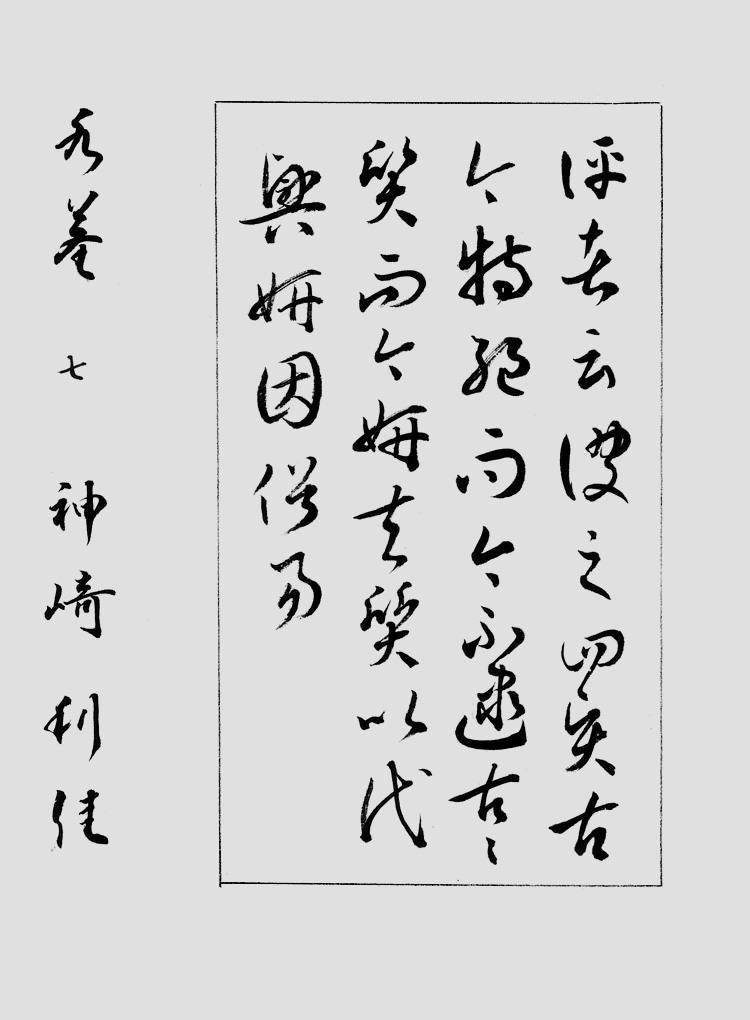 評者云彼之四賢古
今特絶而今不逮古〻
質而今妍夫質以代
興妍因俗易
七 神崎利佳